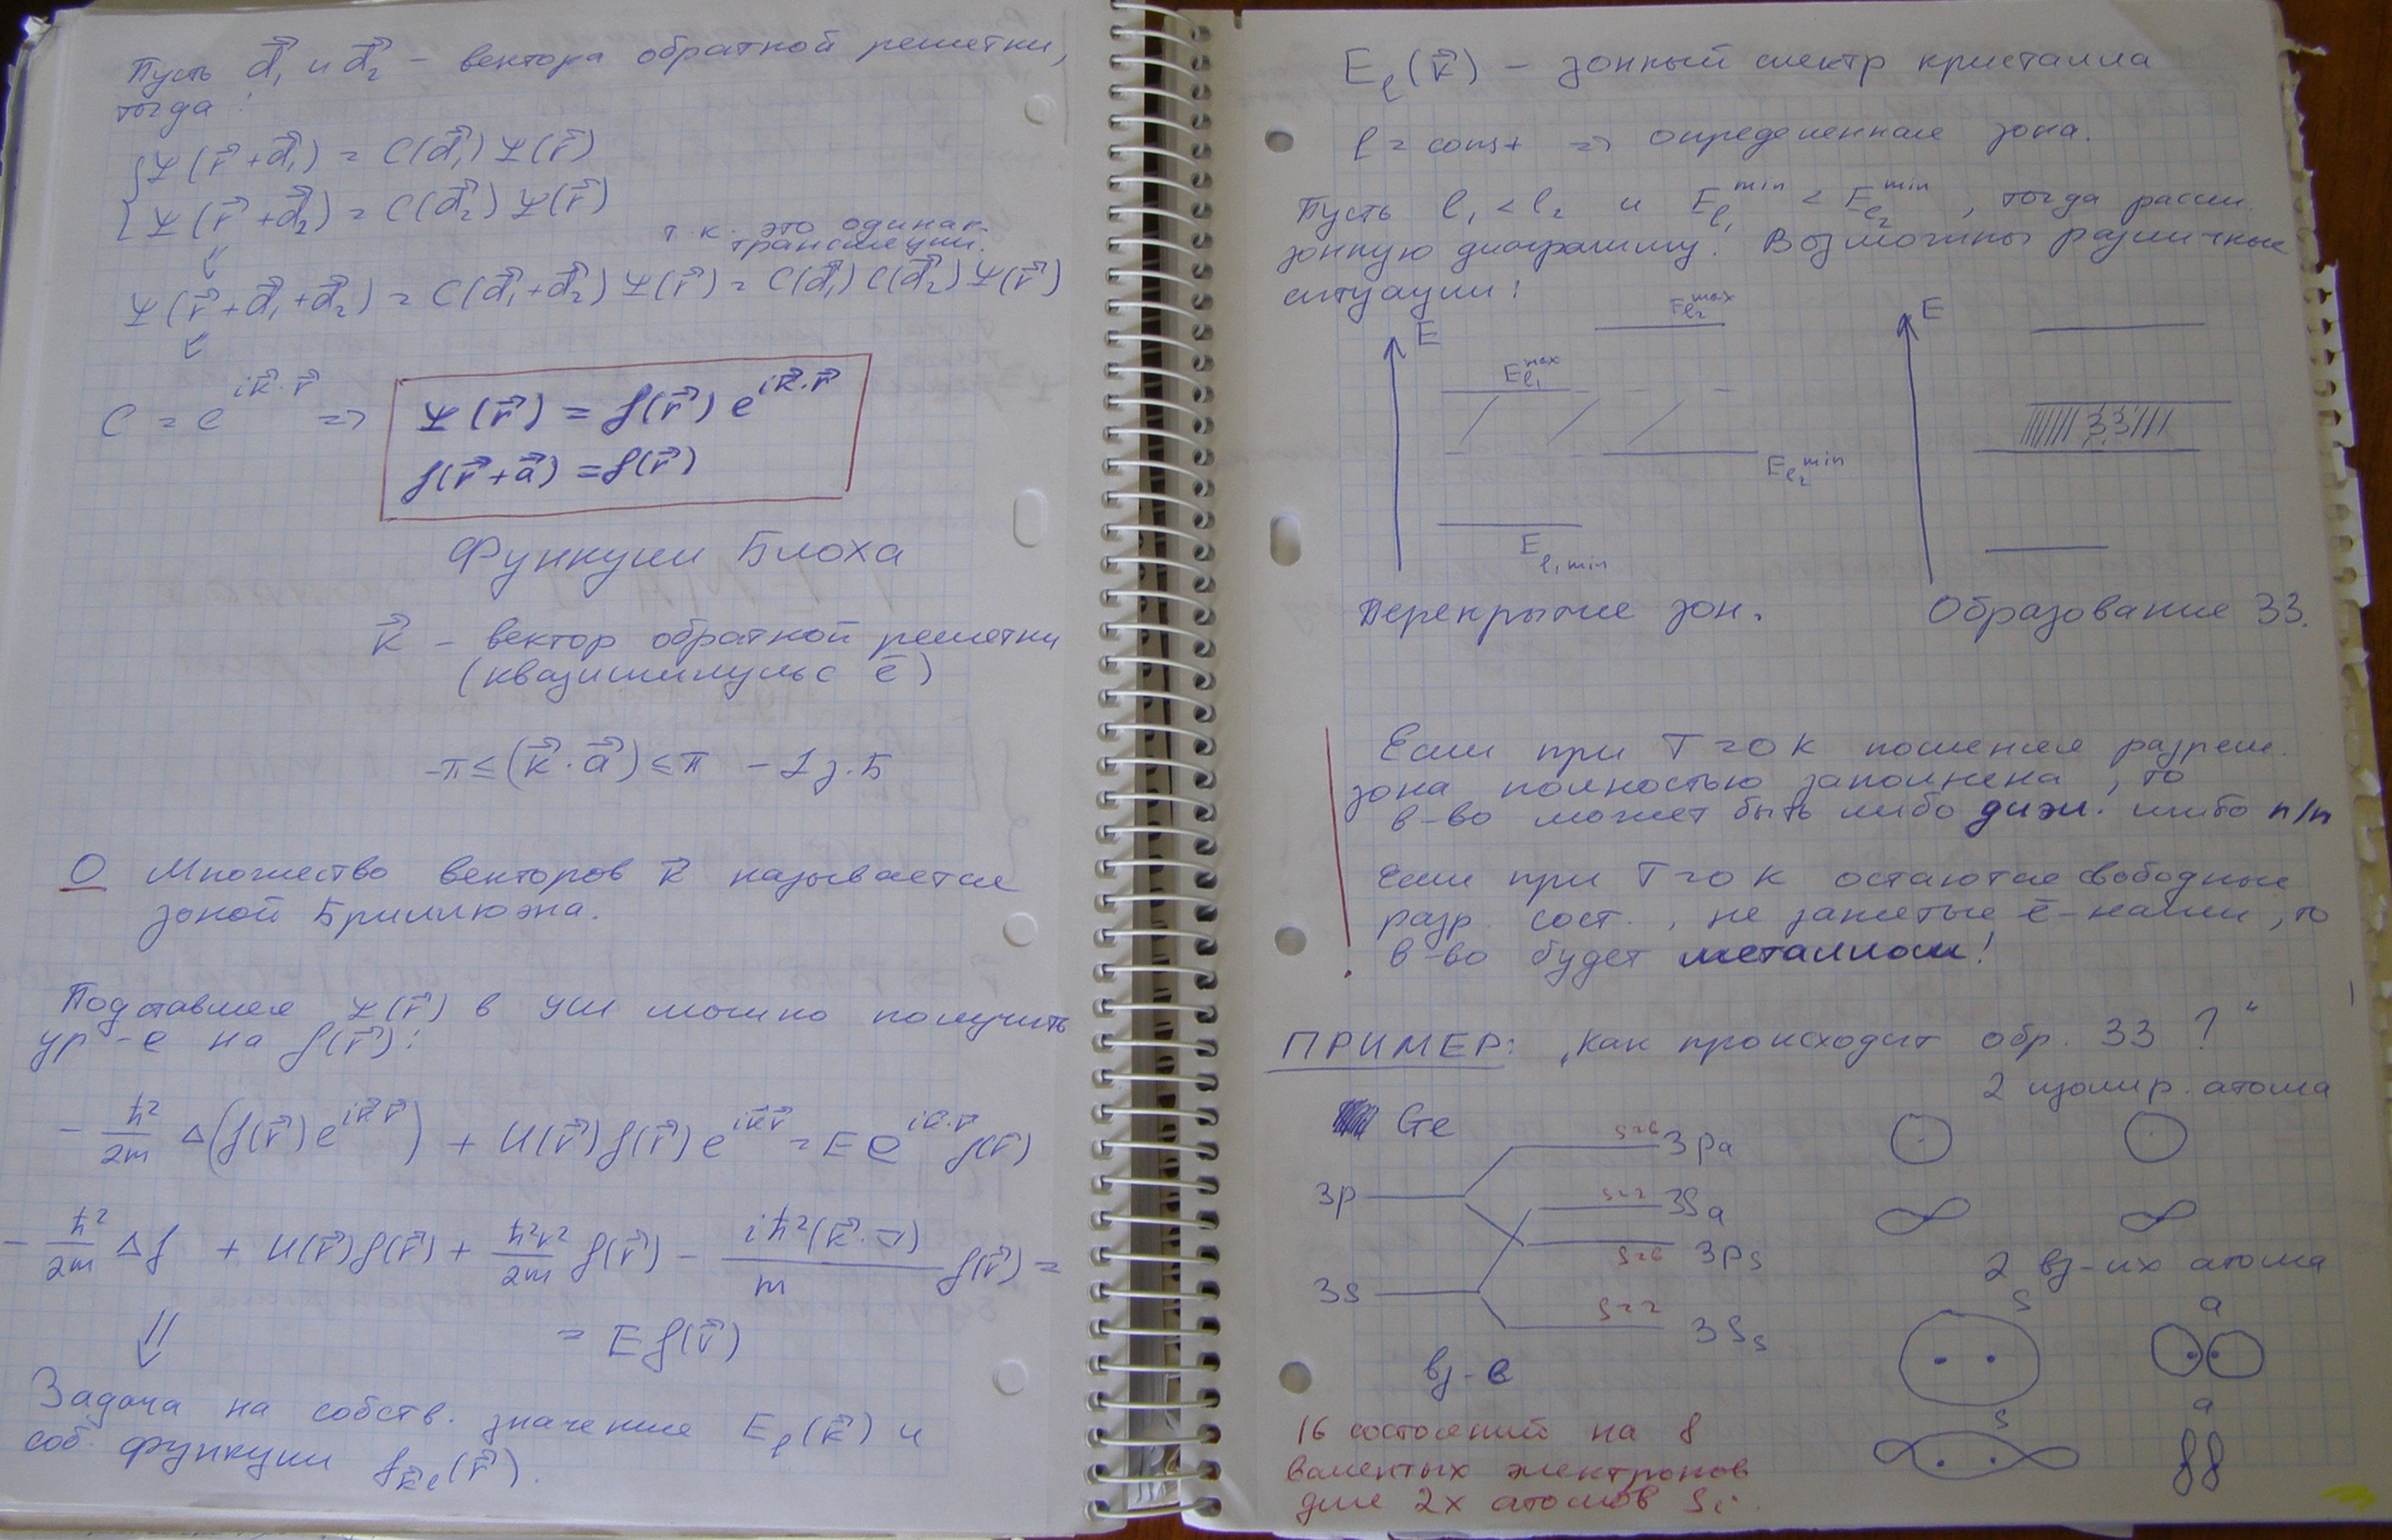 Пусть d⃗₁ и d⃗₂ – вектора обратной решетки,
тогда:
Ψ(r⃗+d⃗₁) = C(d⃗₁)Ψ(r⃗)
Ψ(r⃗+d⃗₂) = C(d⃗₂)Ψ(r⃗)
т.к. это одинак.
трансляции.
Ψ(r⃗+d⃗₁+d⃗₂) = C(d⃗₁+d⃗₂)Ψ(r⃗) = C(d⃗₁)C(d⃗₂)Ψ(r⃗)
C = e^{ik⃗·r⃗} ⇒ Ψ(r⃗) = f(r⃗)e^{ik⃗·r⃗}
f(r⃗+a⃗) = f(r⃗)
Функции Блоха
k⃗ – вектор обратной решетки
(квазиимпульс ē)
-π ≤ (k⃗·a⃗) ≤ π – 1 з.Б
О Множество векторов k⃗ называется
зоной Бриллюэна.
Подставляя Ψ(r⃗) в УШ можно получить
ур-е на f(r⃗):
-ħ²/2m Δ(f(r⃗)e^{ik⃗r⃗}) + U(r⃗)f(r⃗)e^{ik⃗r⃗} = E e^{ik·r} f(r⃗)
-ħ²/2m Δf + U(r⃗)f(r⃗) + ħ²k²/2m f(r⃗) – iħ²(k⃗·∇)/m f(r⃗) =
= E f(r⃗)
⇓
Задача на собств. значения E_ℓ(k⃗) и
соб. функции f_{k⃗ℓ}(r⃗).
E_ℓ(k⃗) – зонный спектр кристалла
ℓ = const ⇒ определенная зона.
Пусть ℓ₁ < ℓ₂ и E_ℓ₁^min < E_ℓ₂^min, тогда рассм.
зонную диаграмму. Возможны различные
ситуации:
E E_ℓ₂^max E
E_ℓ₁^max
З.З.
E_ℓ₂^min
E_ℓ₁min
Перекрытие зон. Образование ЗЗ.
Если при T=0K последняя разреш.
зона полностью заполнена, то
в-во может быть либо диэл. либо п/п
Если при T=0K остаются свободные
разр. сост., не занятые ē-нами, то
в-во будет металлом!
ПРИМЕР: „Как происходит обр. ЗЗ?“
2 изолир. атома
Ge
s=6 3pa
3p
s=2 3Sa
s=6 3ps
2 вз-их атома
3s
s=2 3Ss
s a
вз-е
s a
16 состояний на 8
валентых электронов
для 2х атомов Si.